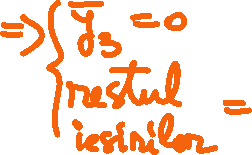 => { ȳ₃ = 0
restul =
iesirilor